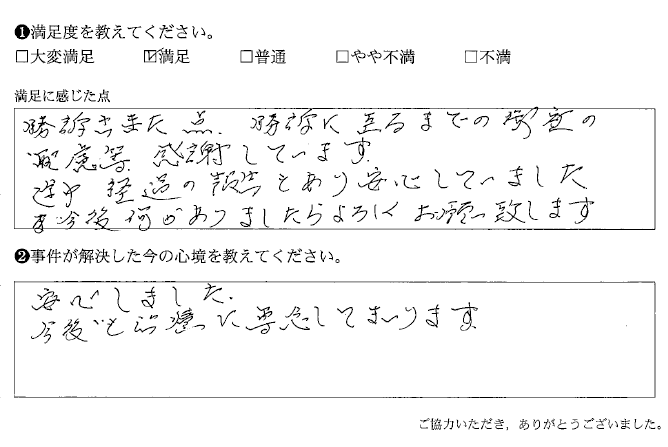 ❶満足度を教えてください。
□大変満足 ☑満足 □普通 □やや不満 □不満
満足に感じた点
勝訴出来た点. 勝訴に至るまでの
配慮等 感謝しています.
途中 経過の報告もあり安心していました
今後何かありましたらよろしくお願い致します
❷事件が解決した今の心境を教えてください。
安心しました.
今後も治療に専念してまいります.
ご協力いただき，ありがとうございました。